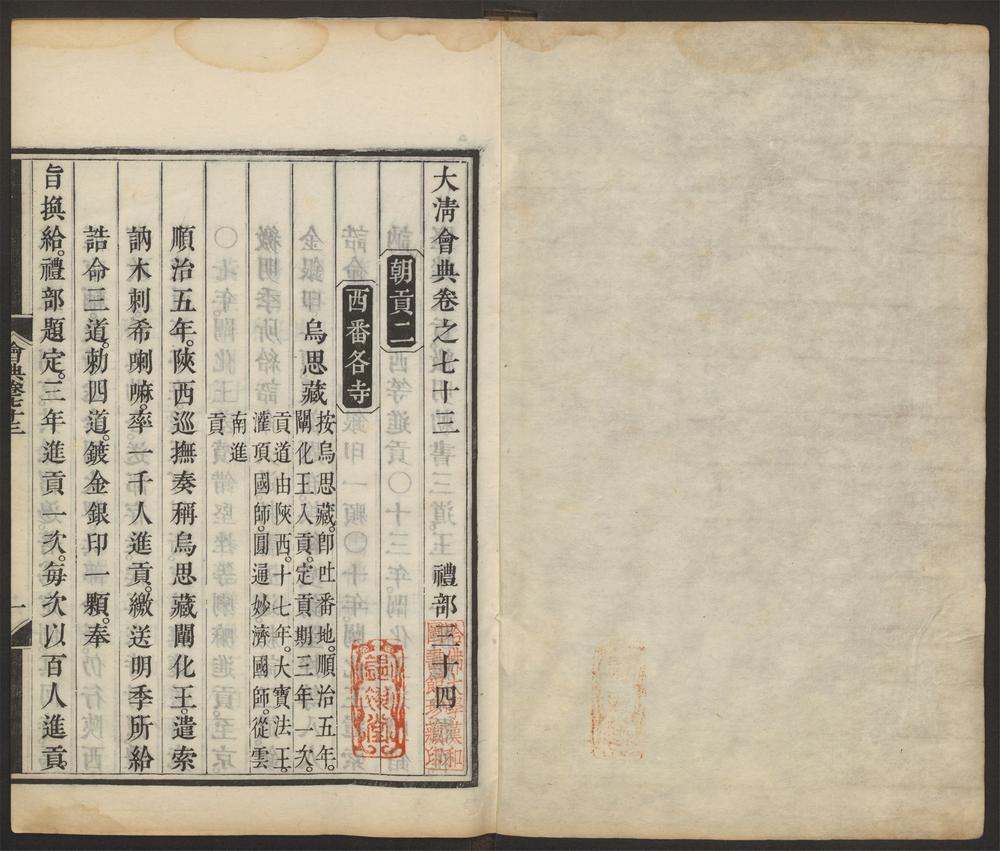 大淸會典卷之七十三 禮部三十四
朝貢二
西番各寺
烏思藏
按烏思藏。卽吐番地。順治五年。
闡化王入貢。定貢期三年一次。
貢道由陝西。十七年。大寶法王。
灌頂國師。圓通妙濟國師。從雲
南進
貢
順治五年。陝西巡撫奏稱烏思藏闡化王。遣索
訥木刺希喇嘛。率一千人進貢。繳送明季所給
誥命三道。勅四道。鍍金銀印一顆。奉
旨換給。禮部題定。三年進貢一次。每次以百人進貢
會典卷七十三
一
哈佛大學漢和
圖書館珍藏印